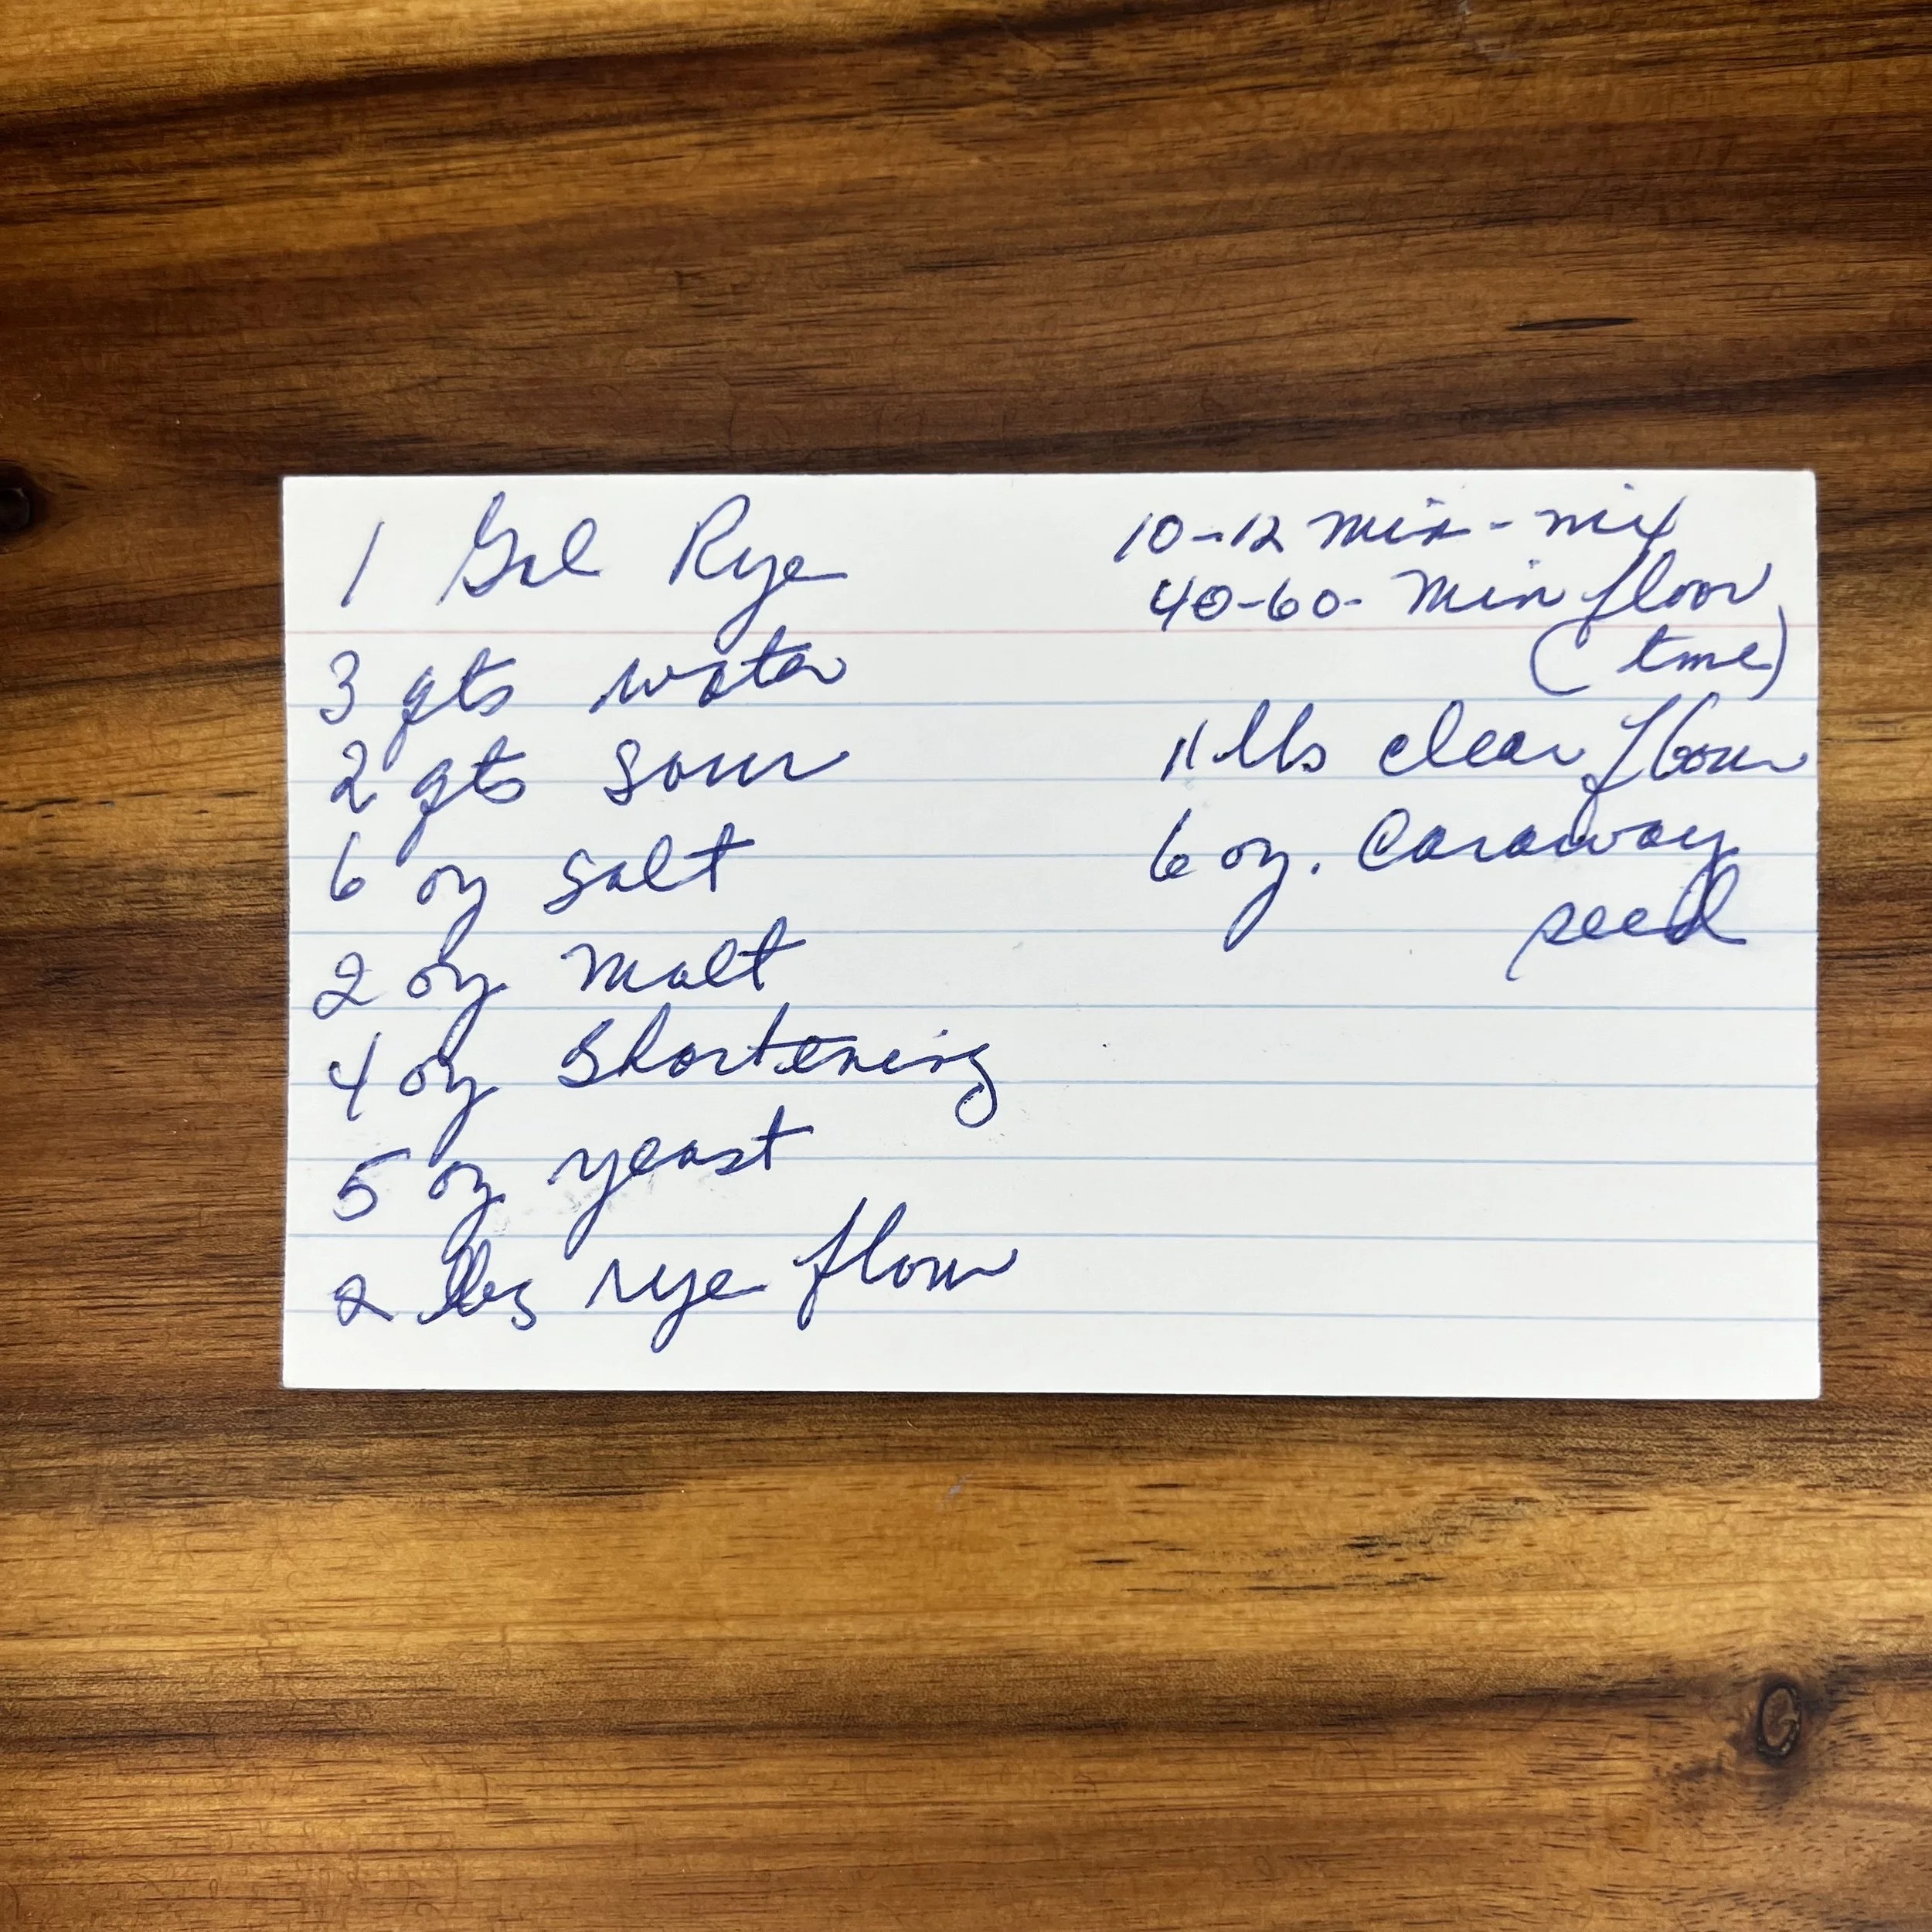 1 Gal Rye
3 qts water
2 qts sour
6 oz salt
2 oz malt
4 oz shortening
5 oz yeast
2 lbs rye flour
10-12 min - mix
40-60- min floor
(time)
11 lbs clear flour
6 oz. Caraway
seed